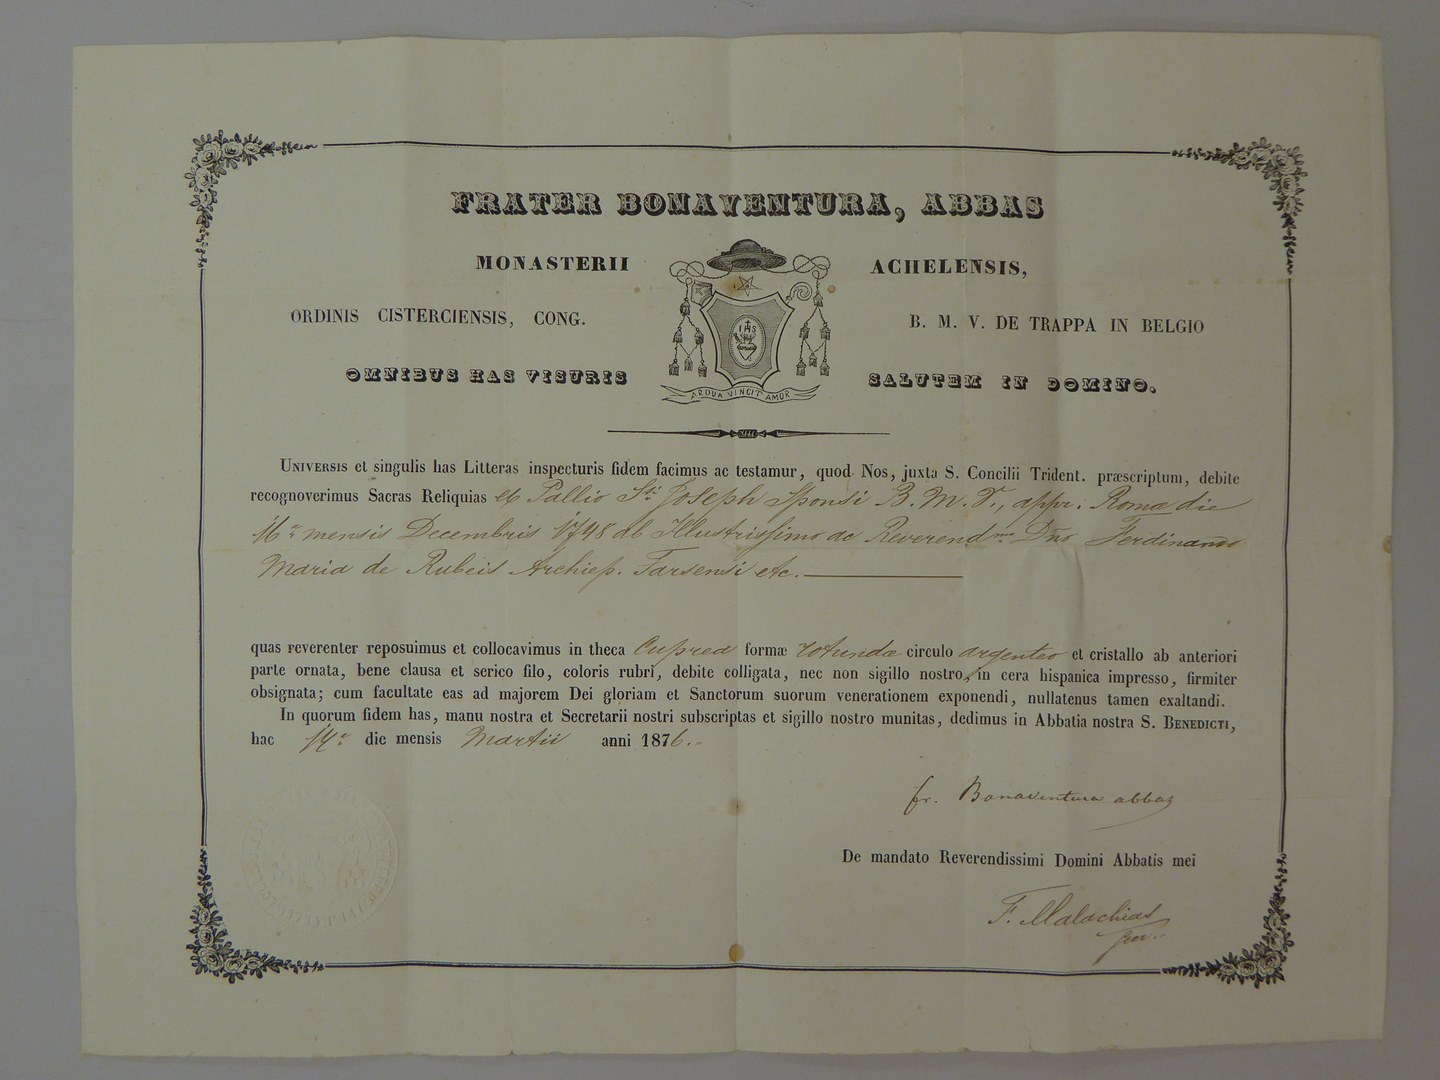 FRATER BONAVENTURA, ABBAS
MONASTERII ACHELENSIS,
ORDINIS CISTERCIENSIS, CONG. B. M. V. DE TRAPPA IN BELGIO
OMNIBUS HAS VISURIS SALUTEM IN DOMINO.
IHS
ARDUA VINCIT AMOR
UNIVERSIS et singulis has Litteras inspecturis fidem facimus ac testamur, quod Nos, juxta S. Concilii Trident. præscriptum, debite
recognoverimus Sacras Reliquias ex Pallio Sti Joseph Sponsi B. M. V., appr. Romæ die
mensis Decembris 1748 ab Illustrissimo ac Reverendmo Dno Ferdinando
Maria de Rubeis Archiep. Tarsensi etc.
quas reverenter reposuimus et collocavimus in theca Cuprea formæ rotundæ circulo argenteo et cristallo ab anteriori
parte ornata, bene clausa et serico filo, coloris rubri, debite colligata, nec non sigillo nostro, in cera hispanica impresso, firmiter
obsignata; cum facultate eas ad majorem Dei gloriam et Sanctorum suorum venerationem exponendi, nullatenus tamen exaltandi.
In quorum fidem has, manu nostra et Secretarii nostri subscriptas et sigillo nostro munitas, dedimus in Abbatia nostra S. BENEDICTI,
hac die mensis Martii anni 1876.
fr. Bonaventura abbas
De mandato Reverendissimi Domini Abbatis mei
F. Malachias